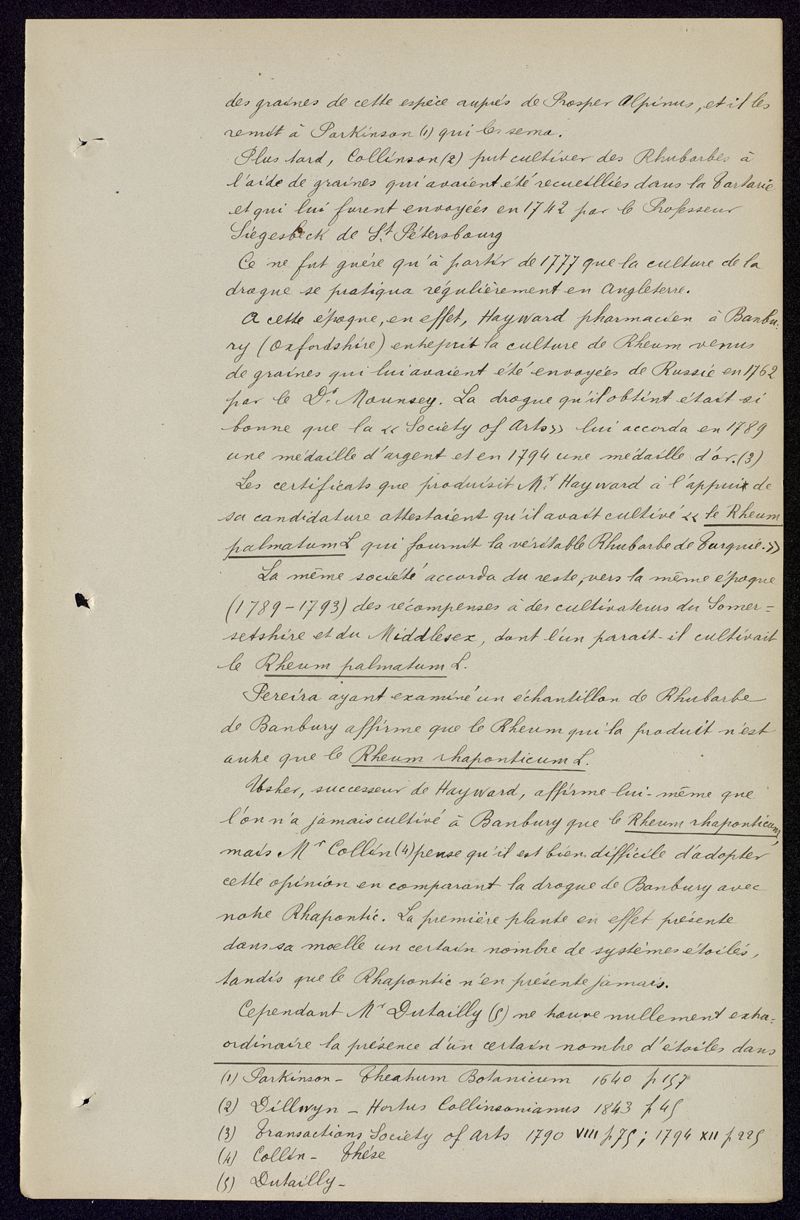 des graines de cette espèce auprès de Prosper Alpinus, et il les
remit à Parkinson (1) qui les sema.
Plus tard, Collinson (2) put cultiver des Rhubarbes à
l'aide de graines qui avaient été recueillies dans la Tartarie
et qui lui furent envoyées en 1742 par le Professeur
Siegesbeck de St. Pétersbourg
Ce ne fut guère qu'à partir de 1777 que la culture de la
drogue se pratiqua régulièrement en Angleterre.
A cette époque, en effet, Hayward pharmacien à Banbu-
ry (Oxfordshire) entreprit la culture de Rheum venus
de graines qui lui avaient été envoyées de Russie en 1762
par le Dr. Mounsey. La drogue qu'il obtint était si
bonne que la « Society of Arts » lui accorda en 1789
une médaille d'argent et en 1794 une médaille d'or. (3)
Les certificats que produisit Mr. Hayward à l'appui de
sa candidature attestaient qu'il avait cultivé « le Rheum
palmatum L qui fournit la véritable Rhubarbe de Turquie. »
La même société accorda du reste, vers la même époque
(1789-1793) des récompenses à des cultivateurs du Somer-
setshire et du Middlesex, dont l'un parait-il cultivait
le Rheum palmatum L.
Pereira ayant examiné un échantillon de Rhubarbe
de Banbury affirme que le Rheum qui la produit n'est
autre que le Rheum rhaponticum L.
Usher, successeur de Hayward, affirme lui-même que
l'on n'a jamais cultivé à Banbury que le Rheum rhaponticum,
mais Mr Collin (4) pense qu'il est bien difficile d'adopter
cette opinion en comparant la drogue de Banbury avec
notre Rhapontic. La première plante en effet présente
dans sa moelle un certain nombre de systèmes étoilés,
tandis que le Rhapontic n'en présente jamais.
Cependant Mr Dutailly (5) ne trouve nullement extra-
ordinaire la présence d'un certain nombre d'étoiles dans
(1) Parkinson - Theatrum Botanicum 1640 p 157
(2) Dillwyn - Hortus Collinsonianus 1843 p 45
(3) Transactions Society of Arts 1790 VIII p 75 ; 1794 XII p 225
(4) Collin - Thèse
(5) Dutailly -